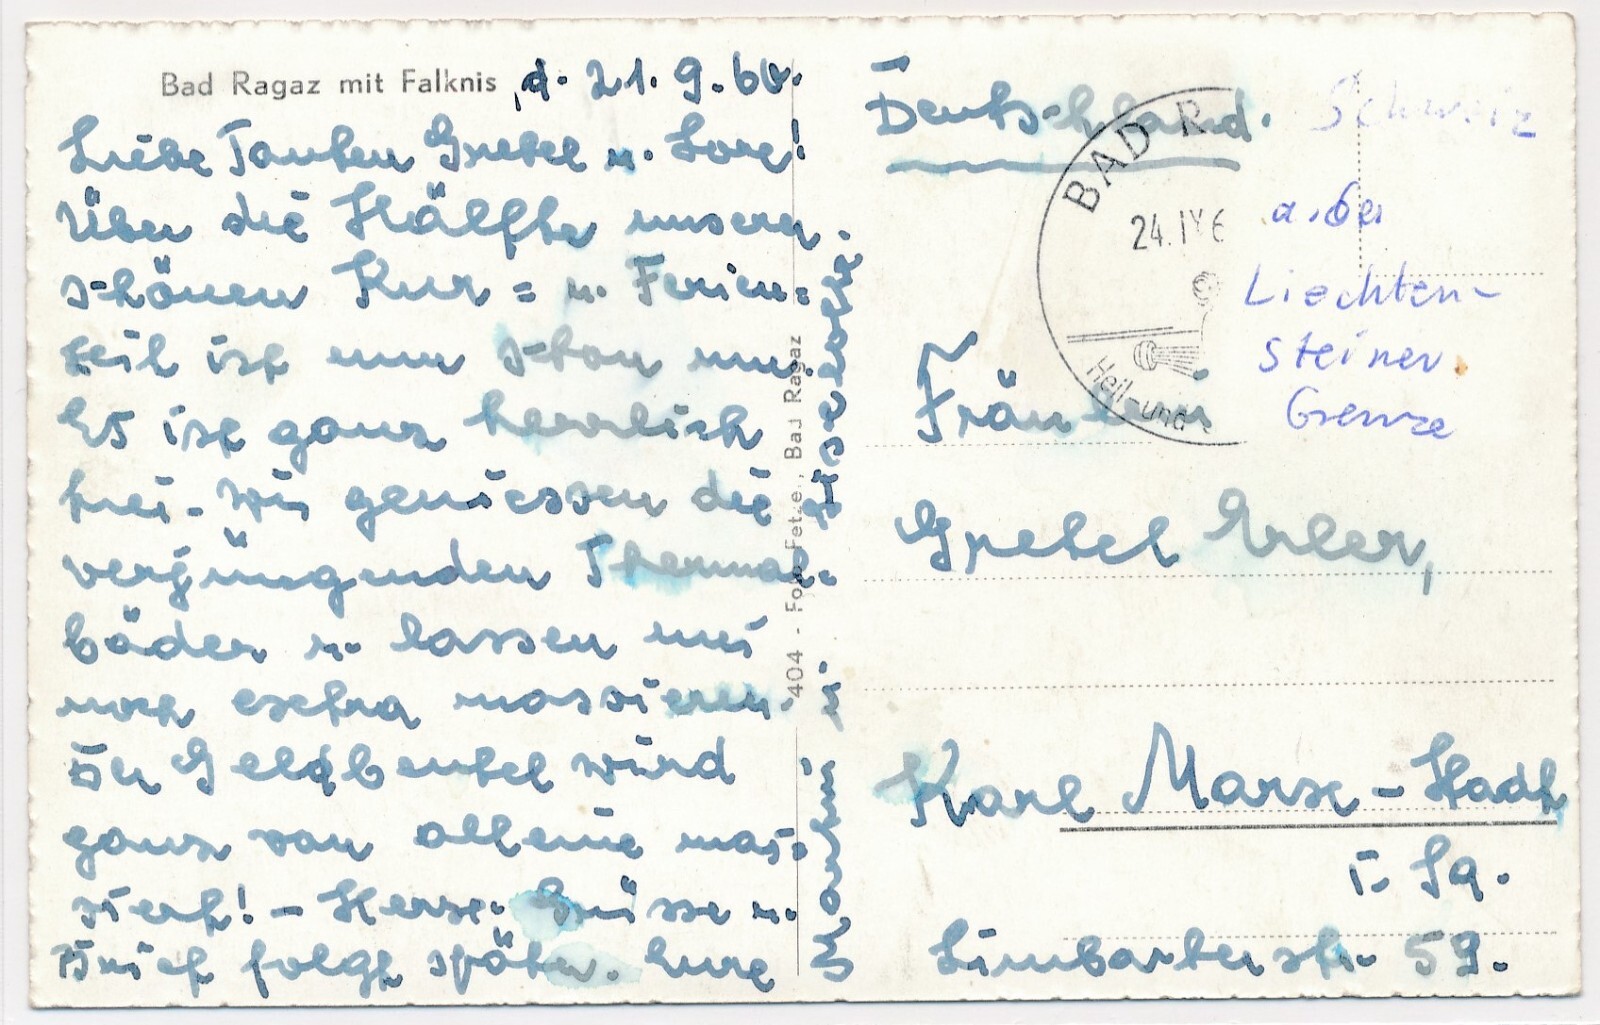 Bad Ragaz mit Falknis, d. 21.9.60.
Liebe Tanten Gretel u. Lore!
Über die Hälfte unserer
schönen Kur= u. Ferien=
zeit ist nun schon um.
Es ist ganz herrlich
hier. Wir geniessen die
verjüngenden Thermal-
bäder u. lassen uns
noch extra massieren.
Der Geldbeutel wird
ganz von alleine mas-
siert! - Herzl. Grüsse u.
Brief folgt später. Eure
Liselotte
404 - Foto Fetzer, Bad Ragaz
Deutschland.
BAD R
24.IX 6
Heil- und
Schweiz
a. der
Liechten-
steiner
Grenze
Fräulein
Gretel Erler,
Karl Marx-Stadt
i. Sa.
Limbacherstr. 59.